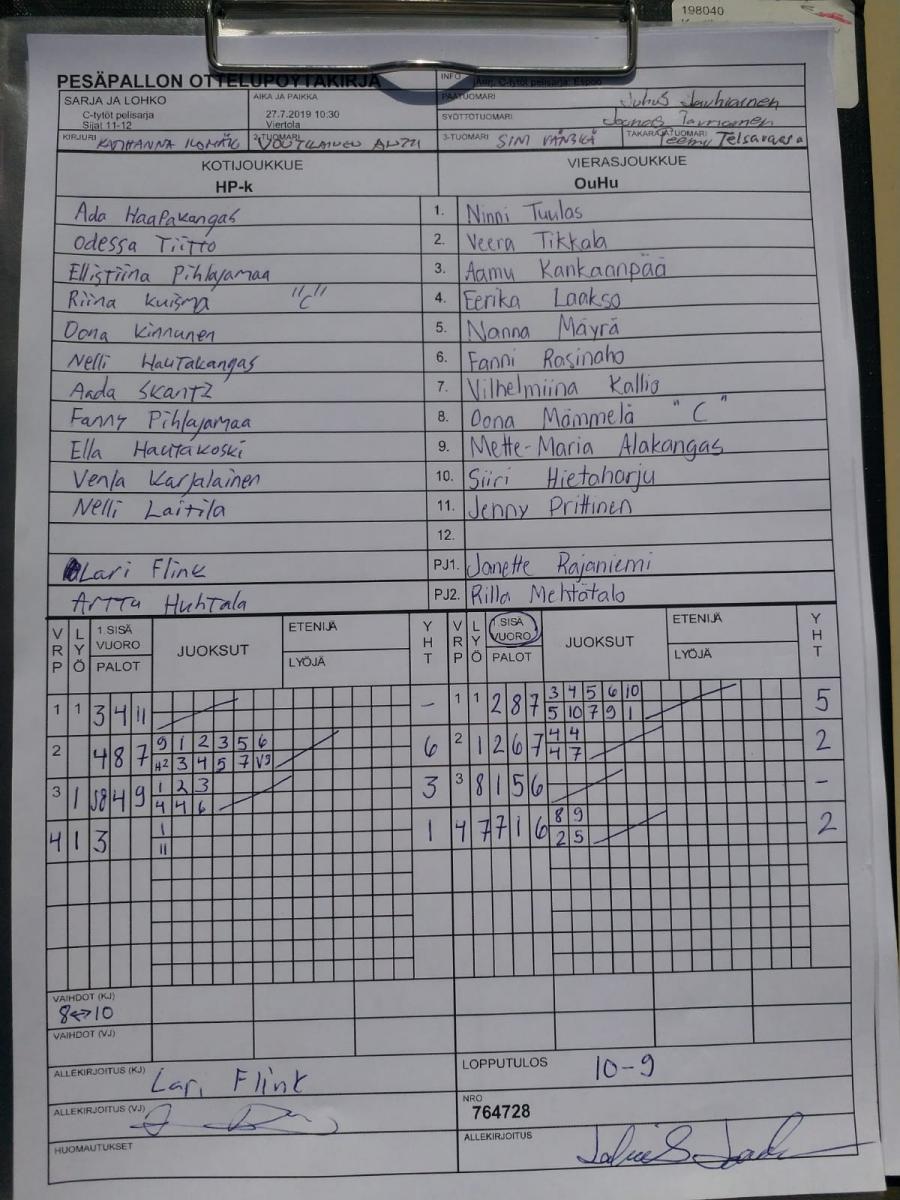 198040
PESÄPALLON OTTELUPÖYTÄKIRJA
INFO
C-tytöt pelisarja, Espoo
SARJA JA LOHKO
C-tytöt pelisarja
Sijat 11-12
AIKA JA PAIKKA
27.7.2019 10:30
Viertola
PÄÄTUOMARI
SYÖTTÖTUOMARI
KIRJURI
2-TUOMARI VOUTILAINEN ANTTI
3-TUOMARI SINI VÄNSKÄ
TAKARAJATUOMARI Teemu
KOTIJOUKKUE
HP-k
VIERASJOUKKUE
OuHu
Ada Haapakangas 1. Ninni Tuulas
Odessa Tiitto 2. Veera Tikkala
Ellistiina Pihlajamaa 3. Aamu Kankaanpää
Riina Kuisma "C" 4. Eerika Laakso
Oona Kinnunen 5. Nanna Mäyrä
Nelli Hautakangas 6. Fanni Rasinaho
Aada Skantz 7. Vilhelmiina Kallio
Fanny Pihlajamaa 8. Oona Mämmelä "C"
Ella Hautakoski 9. Mette-Maria Alakangas
Venla Karjalainen 10. Siiri Hietaharju
Nelli Laitila 11. Jenny Prittinen
12.
Lari Flink PJ1. Janette Rajaniemi
Arttu Huhtala PJ2. Rilla Mehtätalo
VRP LYÖ 1.SISÄ VUORO PALOT JUOKSUT ETENIJÄ LYÖJÄ YHT VRP LYÖ 1.SISÄ VUORO PALOT JUOKSUT ETENIJÄ LYÖJÄ YHT
1 1 3 4 11 - 1 1 2 8 7 3 4 5 6 10 5
5 10 7 9 1
2 4 8 7 9 1 2 3 5 6 6 2 1 2 6 7 4 4 2
3 4 5 7 4 7
3 1 8 4 9 1 2 3 3 3 8 1 5 6 -
4 4 6
4 1 3 1 1 4 7 7 1 6 8 9 2
11 2 5
VAIHDOT (KJ)
8↔10
VAIHDOT (VJ)
ALLEKIRJOITUS (KJ) Lari Flink
LOPPUTULOS 10-9
ALLEKIRJOITUS (VJ)
NRO
764728
HUOMAUTUKSET
ALLEKIRJOITUS